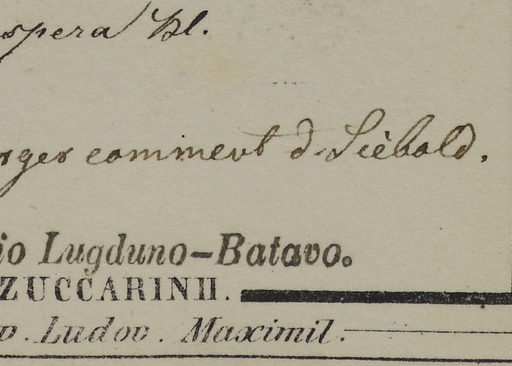 spera Bl.
rger comment d. Siebold.
io Lugduno-Batavo.
ZUCCARINII.
v. Ludov. Maximil.